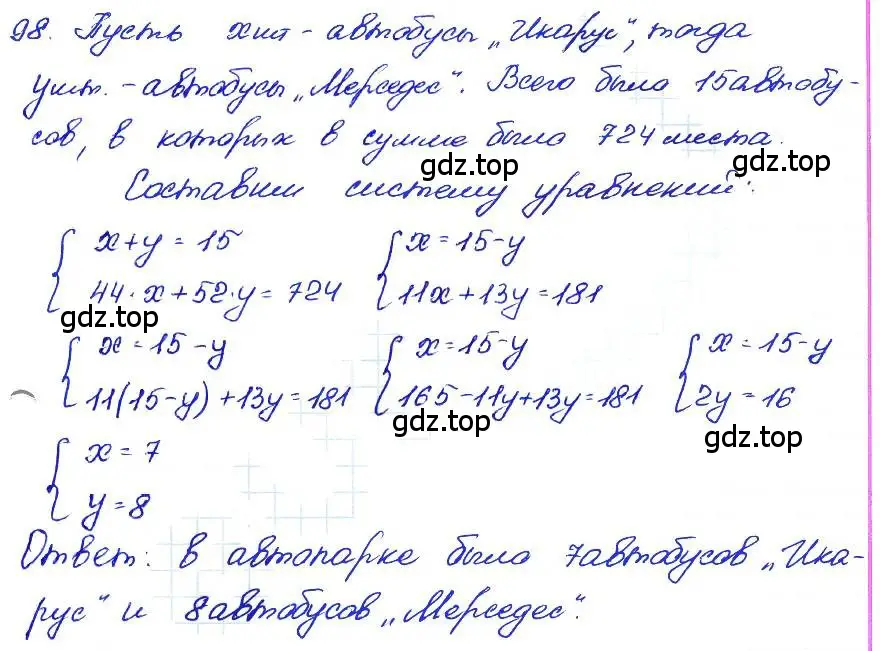 98. Пусть x шт - автобусы „Икарус", тогда
y шт. - автобусы „Мерседес". Всего было 15 автобу-
сов, в которых в сумме было 724 места.
gdz.top gdz.top
Составим систему уравнений:
{ x+y=15 { x=15-y
{ 44·x+52·y=724 { 11x+13y=181
gdz.top
{ x=15-y { x=15-y { x=15-y
{ 11(15-y)+13y=181 { 165-11y+13y=181 { 2y=16
gdz.top gdz.top
{ x=7
{ y=8
Ответ: в автопарке было 7 автобусов „Ика-
рус" и 8 автобусов „Мерседес".